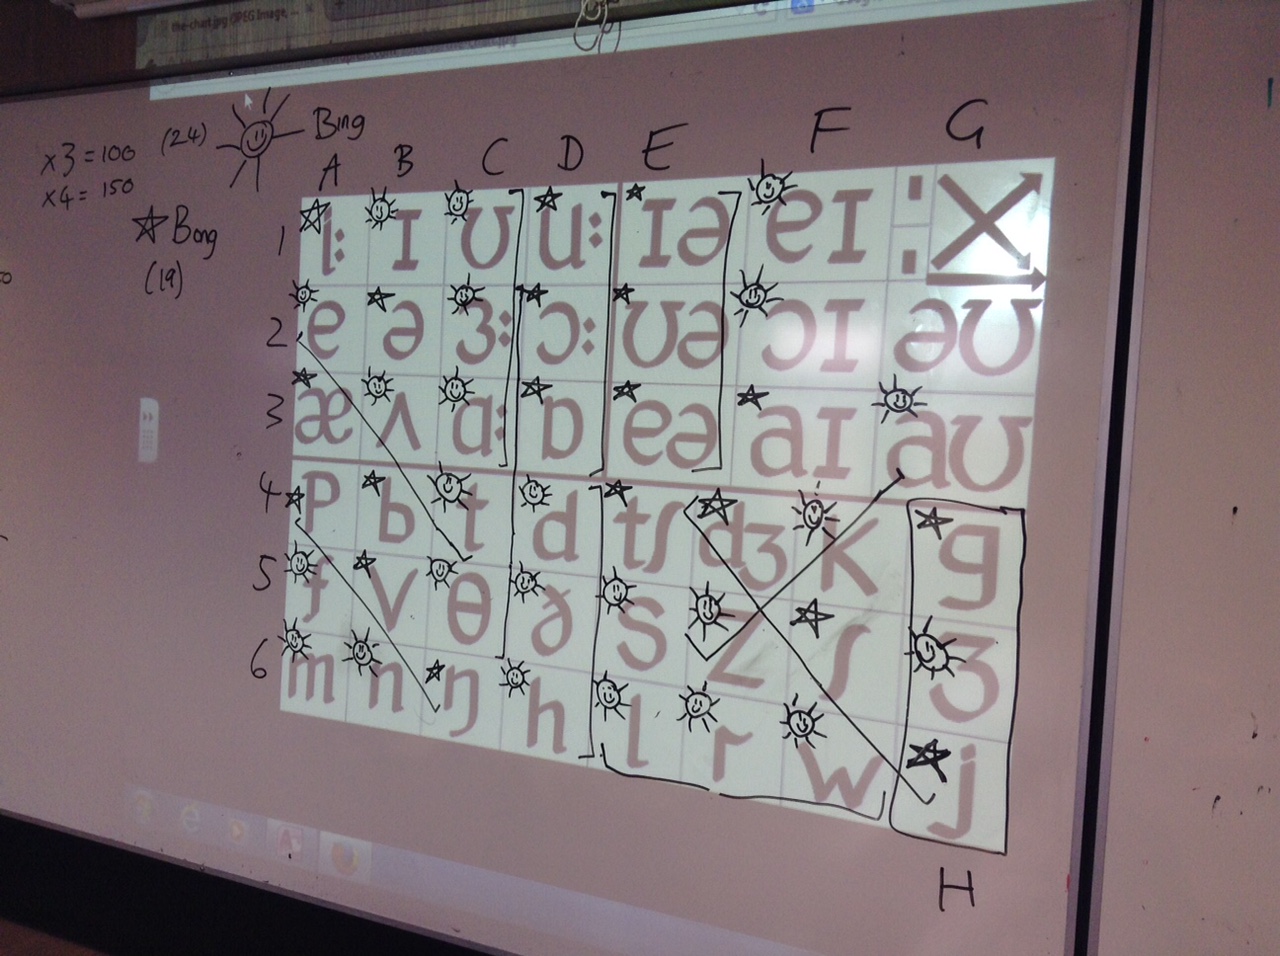 the-chart.jpg (JPEG Image, ...
x3 = 100 (24) Bing
x4 = 150
Bong
(19)
A B C D E F G
1 i: ɪ ʊ u: ɪə eɪ
2 e ə ɜ: ɔ: ʊə ɔɪ əʊ
3 æ ʌ ɑ: ɒ eə aɪ aʊ
4 p b t d tʃ dʒ k g
5 f v θ ð s z ʃ ʒ
6 m n ŋ h l r w j
H